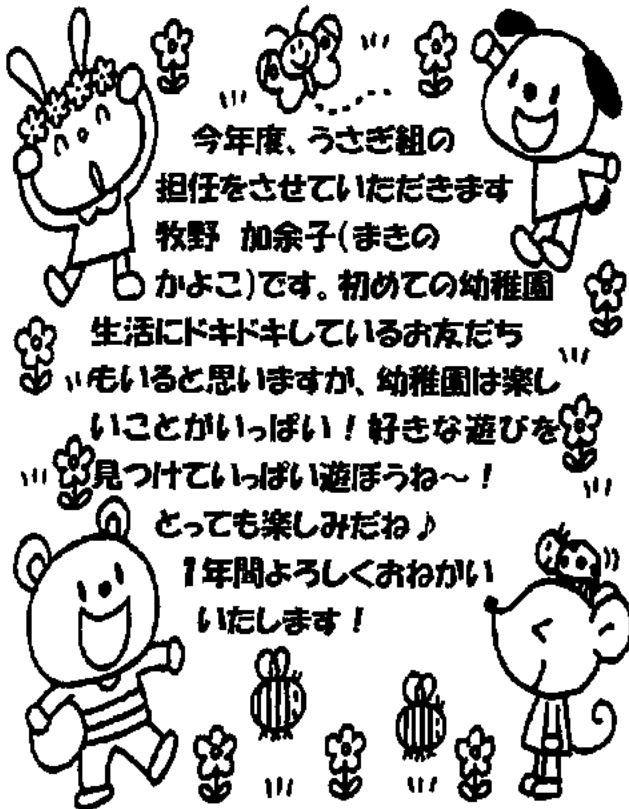 今年度、うさぎ組の
担任をさせていただきます
牧野 加余子(まきの
かよこ)です。初めての幼稚園
生活にドキドキしているお友だち
もいると思いますが、幼稚園は楽し
いことがいっぱい！好きな遊びを
見つけていっぱい遊ぼうね～！
とっても楽しみだね♪
1年間よろしくおねがい
いたします！